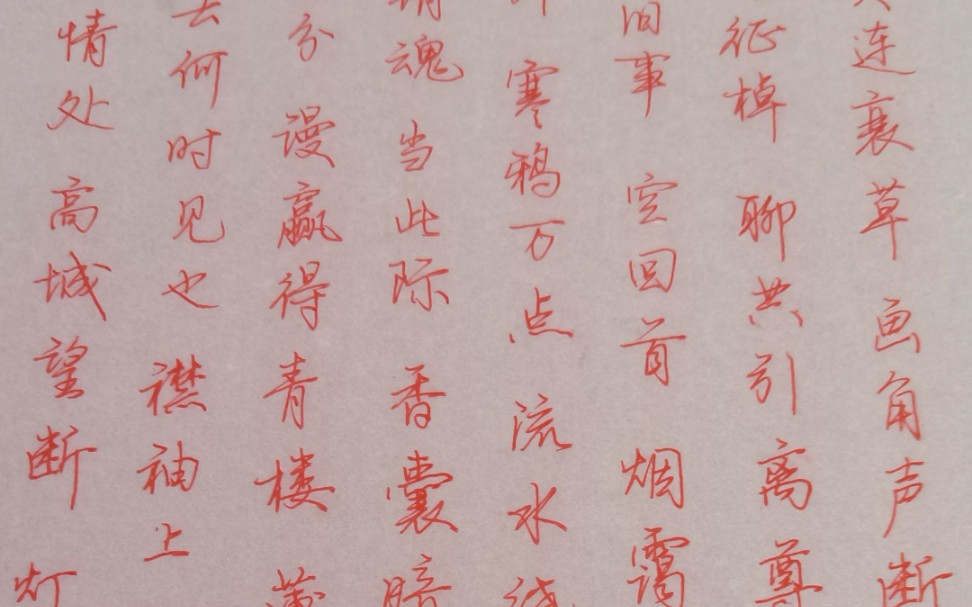 连衰草 画角声断
征棹 聊共引离尊
旧事 空回首 烟霭
寒鸦万点 流水绕
魂 当此际 香囊暗
分 谩赢得青楼 薄
去何时见也 襟袖上
情处 高城望断 灯